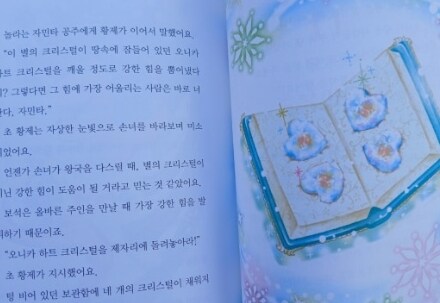 놀라는 자민타 공주에게 황제가 이어서 말했어요.
"이 별의 크리스털이 땅속에 잠들어 있던 오니카
하트 크리스털을 깨울 정도로 강한 힘을 뿜어냈다
그렇다면 그 힘에 가장 어울리는 사람은 바로 너
자민타."
초 황제는 자상한 눈빛으로 손녀를 바라보며 미소
언젠가 손녀가 왕국을 다스릴 때, 별의 크리스털이
강한 힘이 도움이 될 거라고 믿는 것 같았어요.
보석은 올바른 주인을 만날 때 가장 강한 힘을 발
때문이죠.
"오니카 하트 크리스털을 제자리에 돌려놓아라!"
초 황제가 지시했어요.
텅 비어 있던 보관함에 네 개의 크리스털이 채워지